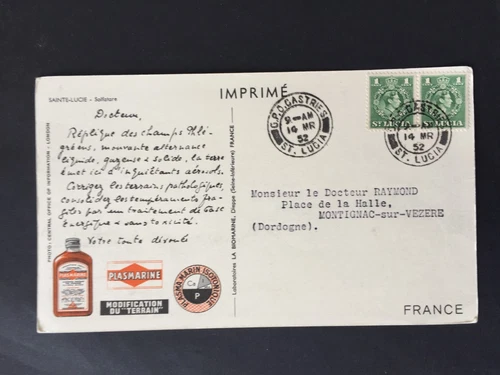 SAINTE-LUCIE - Solfatare
IMPRIMÉ
1 1
ST LUCIA ST LUCIA
G.P.O. CASTRIES
9 AM
14 MR
52
ST. LUCIA
G.P.O. CASTRIES
14 MR
52
ST. LUCIA
Docteur,
Réplique des Champs Phlé-
gréens, mouvante alternance
liquide, gazeuse & solide, la terre
émet ici d'inquiétants aérosols.
Corrigez les terrains pathologiques,
consolidez les tempéraments fra-
giles par un traitement de base
Energétique & sans toxicité.
Votre toute dévouée
PLASMARINE
PLASMARINE
MODIFICATION
DU "TERRAIN"
PLASMA MARIN ISOTONIQUE
Ca
P
PHOTO: CENTRAL OFFICE OF INFORMATION - LONDON
Laboratoires LA BIOMARINE, Dieppe (Seine-Inférieure) FRANCE
Monsieur le Docteur RAYMOND
Place de la Halle,
MONTIGNAC-sur-VEZERE
(Dordogne).
FRANCE